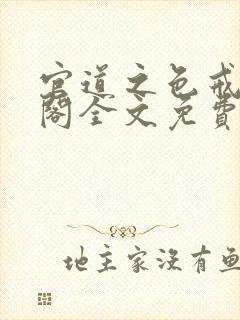 官道之色戒
阁全文免費
地主家沒有魚